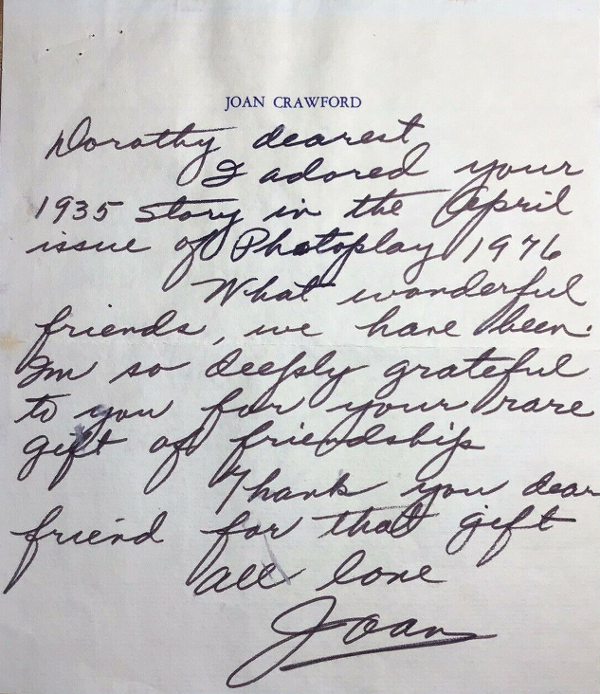 JOAN CRAWFORD
Dorothy dearest
I adored your
1935 story in the April
issue of Photoplay 1976
What wonderful
friends, we have been.
Im so deeply grateful
to you for your rare
gift of friendship
Thank you dear
friend for that gift
all love
Joan